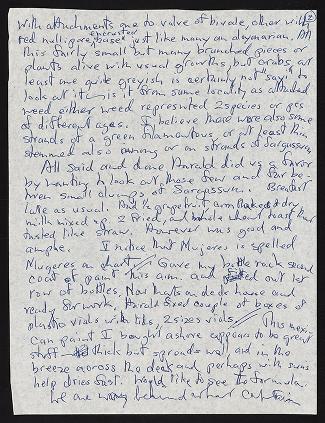 2
With attachments one to valve of bivalve, other with
red nullipore, base encrusted just like many an alcyonarian. All
this fairly small but many branched pieces or
plants alive with usual growths, but crabs, at
least one quite greyish is certainly not "say" to
look at it is it from some locality as attached
weed either weed represented 2 species or ges
of different ages. I believe there were also some
strands of a green filamentous, or at least thin
stemmed also among or on strands of Sargassum
All said and done Harald did us a favor
by wanting to look out these few and far be-
tween small clumps of Sargassum. Breakfast
late as usual. And ½ grapefruit, corn flakes & dry
milk mixed up, 2 fried, and whole wheat toast that
tasted like straw. However was good and
ample. I notice that Mujeres is spelled
Mugeres on chart // Gave my bottle rack second
coat of paint this a.m. and out let
row of bottles. Now hatch on deck house and
ready for work, Harald fixed couple of boxes of
plastic vials with lids, 2 sizes vials // This mexi-
can paint I bought ashore appears to be great
stuff thick but spreads well, and in the
breeze across the deck and perhaps with suns
help dries fast. Would like to see the formula.
We are way behind what Captain